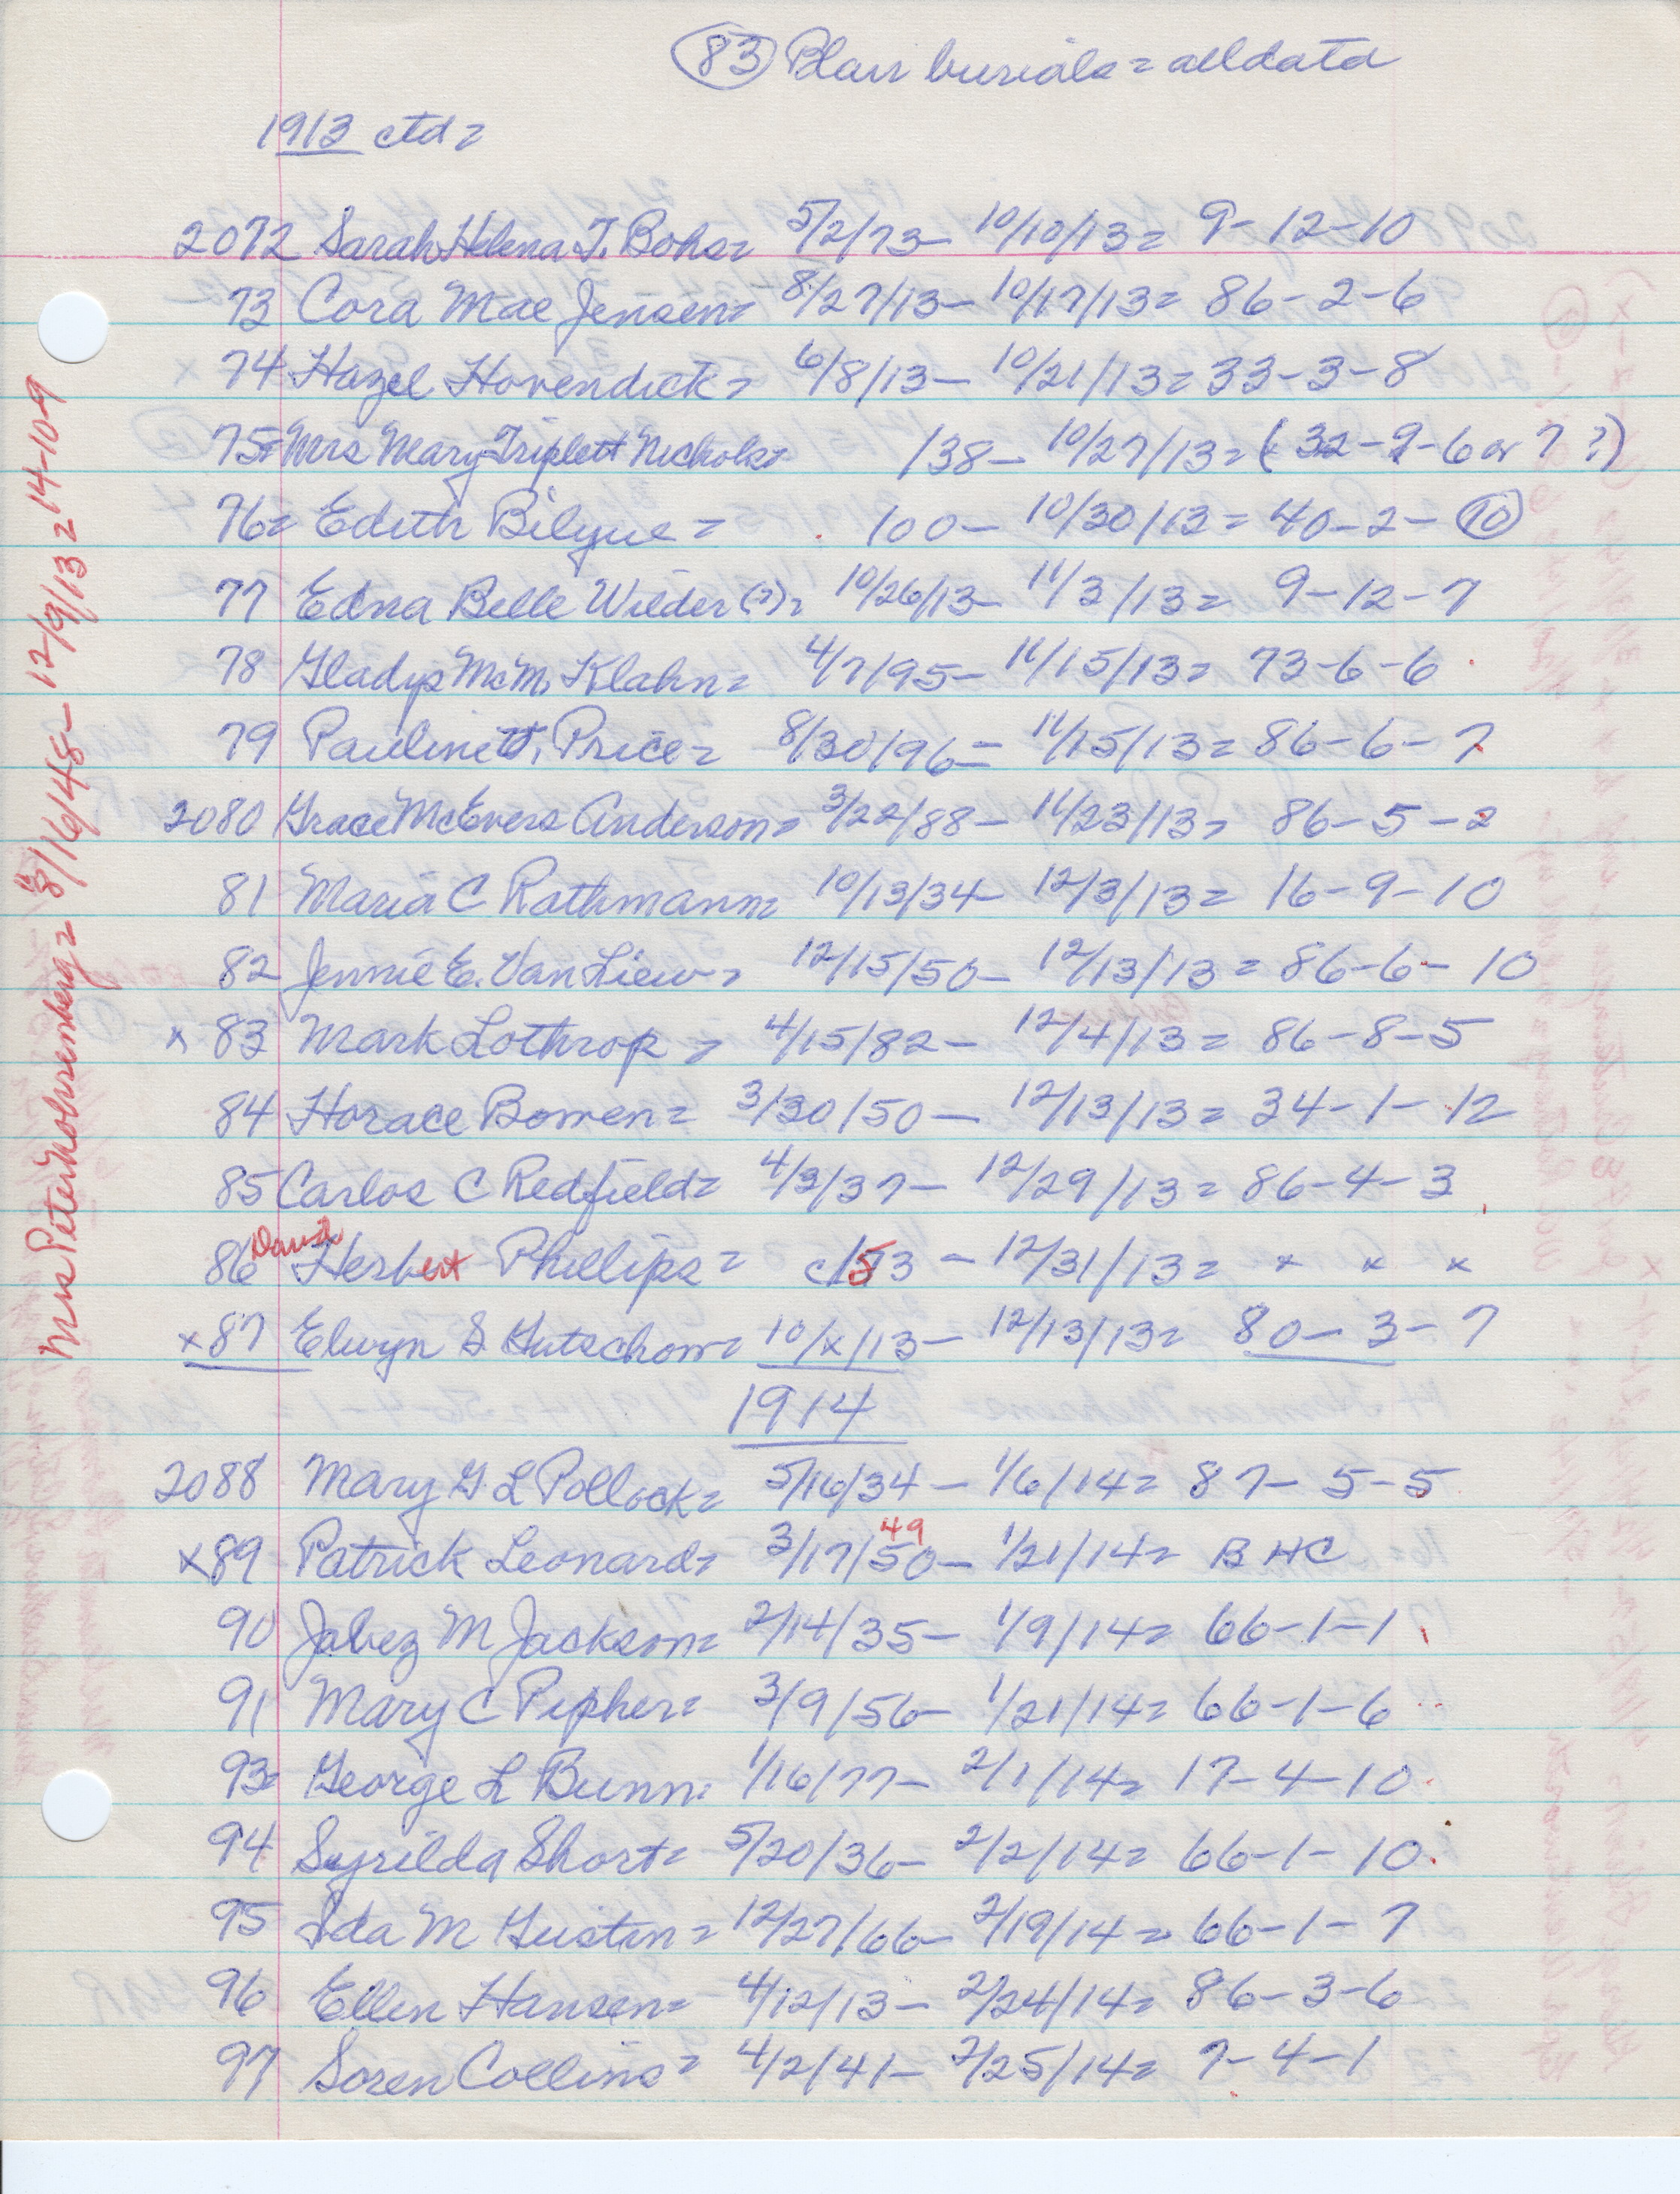 83 Blair burials = all data
1913 ctd =
2072 Sarah Helena T. Bohs = 5/2/73 – 10/10/13 = 9 – 12 – 10
73 Cora Mae Jensen = 8/27/13 – 10/17/13 = 86 – 2 – 6
74 Hazel Hovendick = 6/8/13 – 10/21/13 = 33 – 3 – 8
75 = Mrs Mary Triplett Nichols = /38 – 10/27/13 = ( 32 – 9 – 6 or 7 ?)
76 = Edith Bilyue = 100 – 10/30/13 = 40 – 2 – 10
77 Edna Belle Wilder (?) = 10/26/13 – 11/3/13 = 9 – 12 – 7
78 Gladys McM. Klahn = 4/7/95 – 11/15/13 = 73 – 6 – 6
79 Price = 8/30/96 = 11/15/13 = 86 – 6 – 7
2080 Grace McEvers Anderson = 3/22/88 – 11/23/13 = 86 – 5 – 2
81 Maria C Rathmann = 10/13/34 – 12/3/13 = 16 – 9 – 10
82 Jennie E. Van Liew = 12/15/50 – 12/13/13 = 86 – 6 – 10
x 83 Mark Lothrop = 4/15/82 – 12/4/13 = 86 – 8 – 5
84 Horace Bowen = 3/30/50 – 12/13/13 = 34 – 1 – 12
85 Carlos C Redfield = 4/3/37 – 12/29/13 = 86 – 4 – 3
86 David Herbert Phillips = c/53 – 12/31/13 = x x x
x 87 Elwyn S. Gutschow = 10/x/13 – 12/13/13 = 80 – 3 – 7
1914
2088 Mary G L Pollock = 5/16/34 – 1/6/14 = 87 – 5 – 5
49
x 89 Patrick Leonard = 3/17/50 – 1/21/14 = B HC
90 Jabez M Jackson = 2/14/35 – 1/9/14 = 66 – 1 – 1
91 Mary C Pepher = 3/9/56 – 1/21/14 = 66 – 1 – 6
93 = George L Bunn = 1/16/77 – 2/1/14 = 17 – 4 – 10
94 Syrilda Short = 5/20/36 – 2/2/14 = 66 – 1 – 10
95 Ida M Gustin = 12/27/66 – 2/19/14 = 66 – 1 – 7
96 Ellen Hansen = 4/12/13 – 2/24/14 = 86 – 3 – 6
97 Soren Collins = 4/2/41 – 2/25/14 = 7 – 4 – 1
Mrs Peter = 8/16/48 – 12/9/13 = 14-10-9